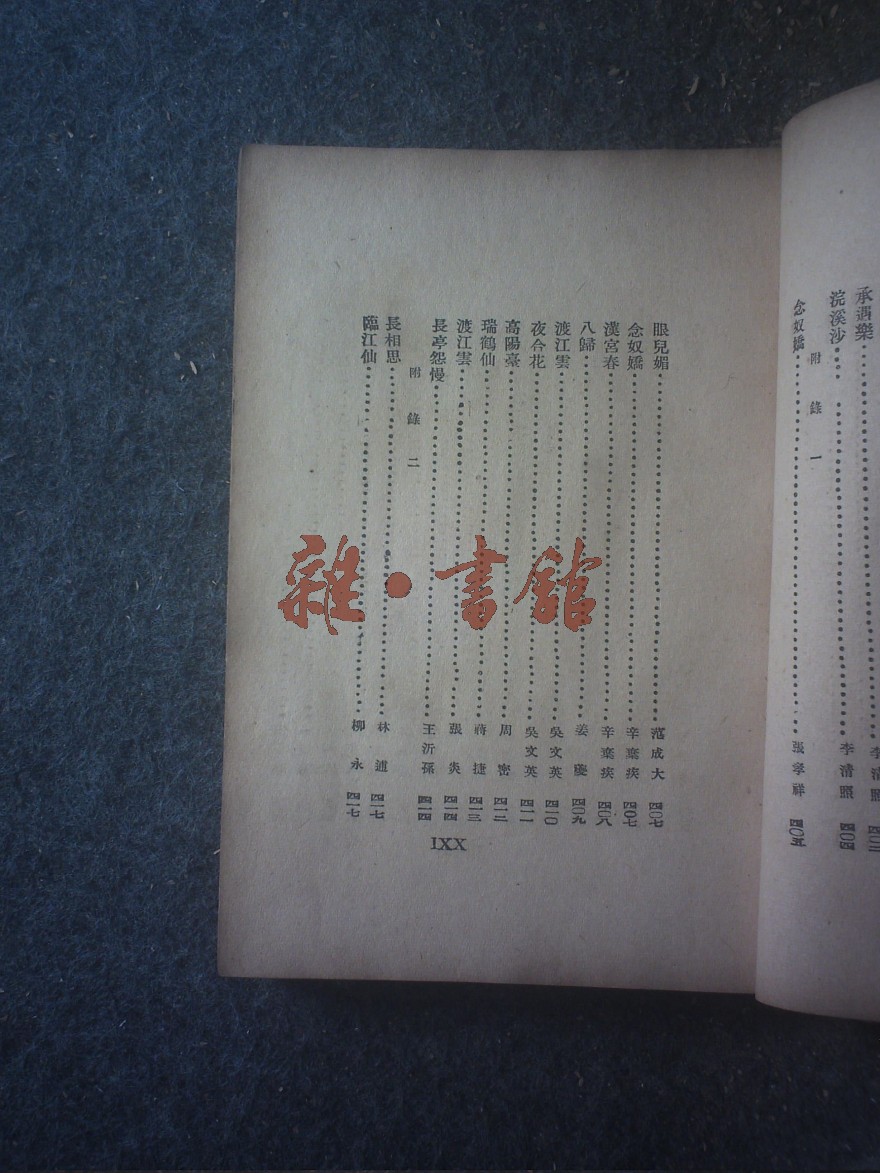 永遇樂 李清照
浣溪沙 李清照 四〇四
附錄一
念奴嬌 張孝祥 四〇五
眼兒媚 范成大 四〇七
念奴嬌 辛棄疾 四〇七
漢宮春 辛棄疾 四〇八
八歸 姜夔 四〇九
渡江雲 吳文英 四一〇
夜合花 吳文英 四一一
高陽臺 周密 四一二
瑞鶴仙 蔣捷 四一三
渡江雲 張炎 四一四
長亭怨慢 王沂孫 四一四
附錄二
長相思 林逋 四一七
臨江仙 柳永 四一七
IXX
雜·書館